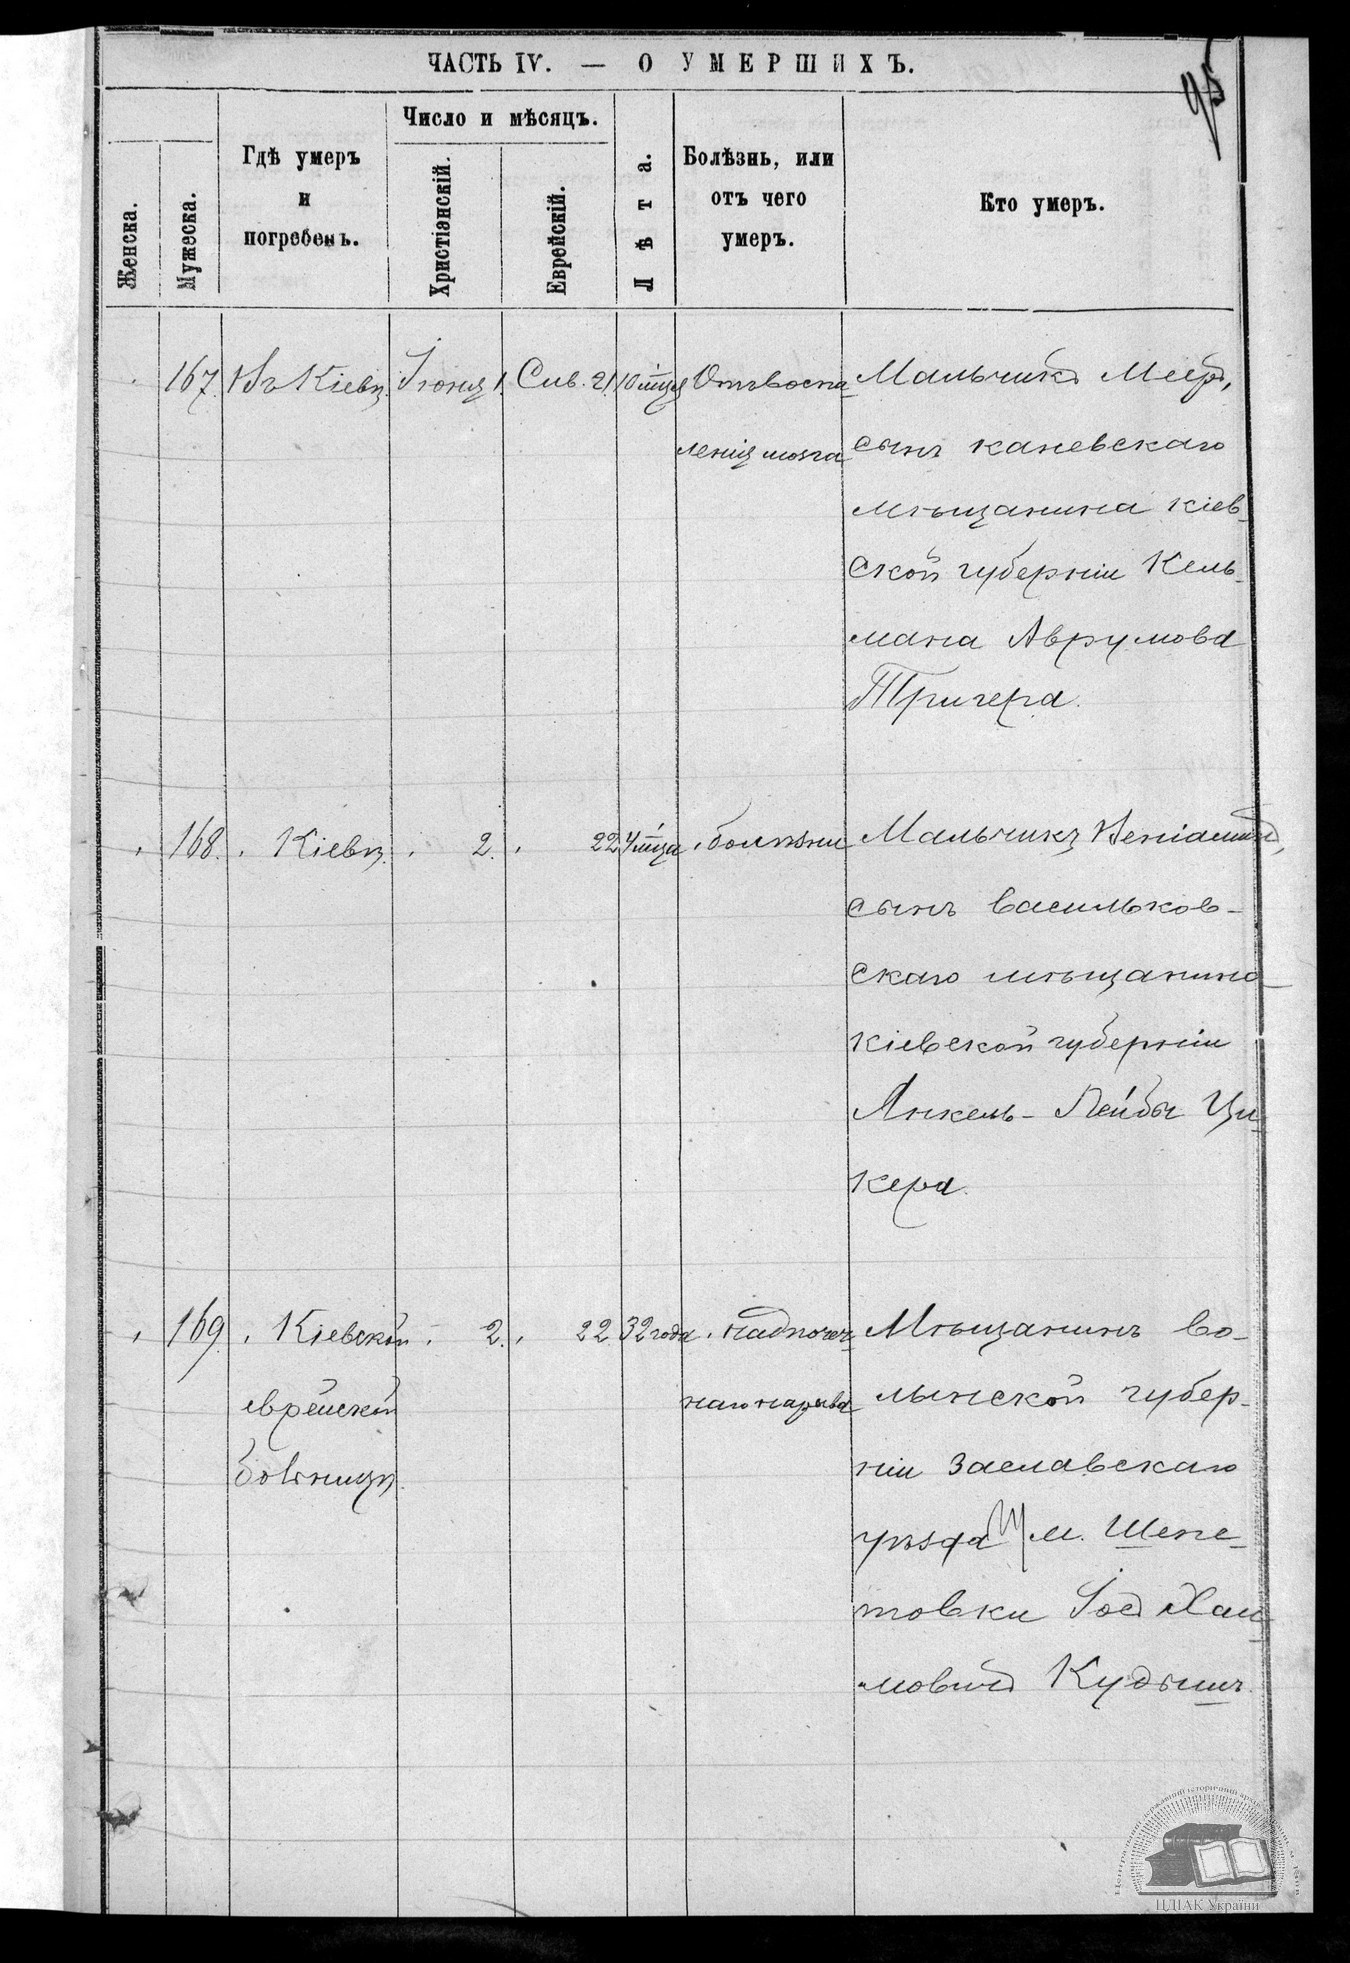 ЧАСТЬ IV. — О УМЕРШИХЪ.
95
Женска.
Мужеска.
Гдѣ умеръ
и
погребенъ.
Число и мѣсяцъ.
Христіэнскій.
Еврейскій.
Лѣта.
Болѣзнь, или
отъ чего
умеръ.
Кто умеръ.
167. Въ Кіевѣ. Іюня 1. Сив. 21. 10 м‑ця Отъ воспа-
ленія мозга
Мальчикъ Меер,
сынъ каневскаго
мѣщанина кіев-
ской губерніи Кель-
мана Аврумова
Тригера.
168. Кіевѣ. 2. 22 4 м‑ца болѣзни
Мальчикъ Веніаминъ,
сынъ васильков-
скаго мѣщанина
кіевской губерніи
Янкель-Лейбы Ци-
кера.
169. Кіевской 2. 22 32 года надпочеч-
еврейской
больницѣ.
наго нарыва
Мѣщанинъ во-
лынской губер-
ніи Заславскаго
уѣзда м. Шепе-
товки Іос Хаи-
мовичъ Кудыш.
ЦДІАК України